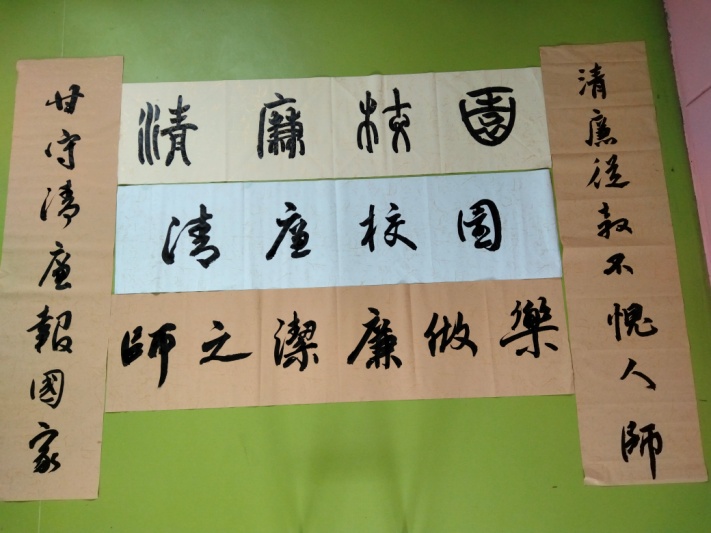 甘守清廉報國家
清廉校園
清廉校園
樂做廉潔之師
清廉從教不愧人師